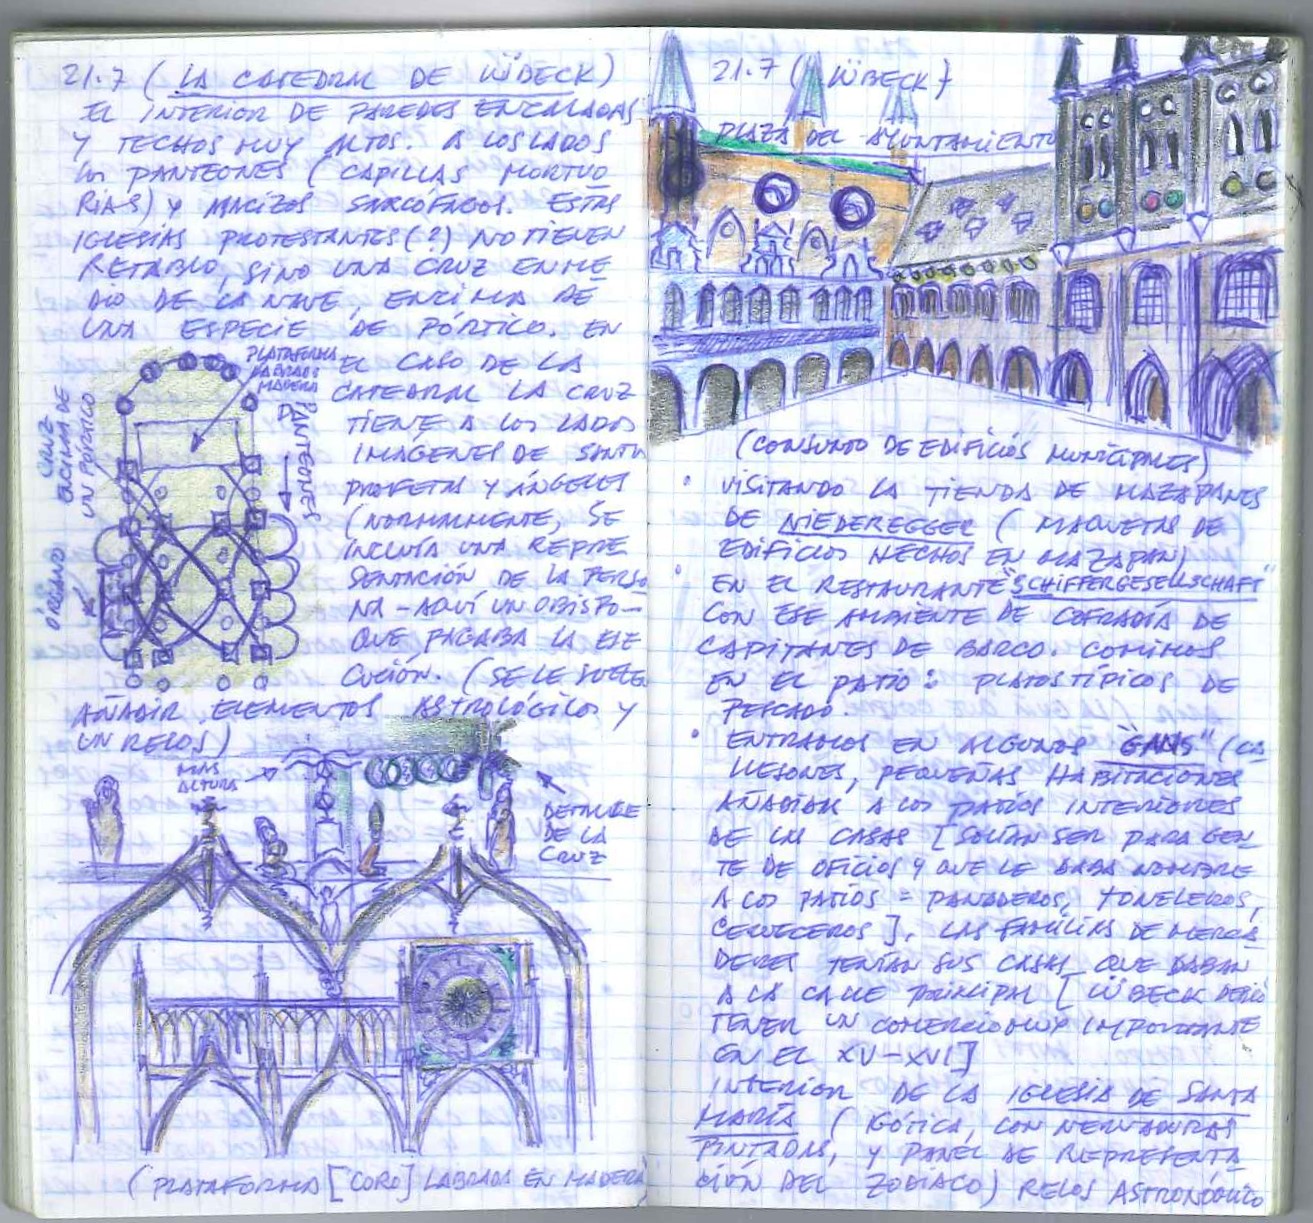 21.7 (LA CATEDRAL DE LÜBECK)
EL INTERIOR DE PAREDES ENCALADAS
Y TECHOS MUY ALTOS. A LOS LADOS
LOS PANTEONES (CAPILLAS MORTUO
RIAS) Y MACIZOS SARCÓFAGOS. ESTAS
IGLESIAS PROTESTANTES (?) NO TIENEN
RETABLO, SINO UNA CRUZ EN ME
DIO DE LA NAVE, ENCIMA DE
UNA ESPECIE DE PÓRTICO. EN
EL CASO DE LA
CATEDRAL LA CRUZ
TIENE A LOS LADOS
IMÁGENES DE SANTOS
PROFETAS Y ÁNGELES
(NORMALMENTE, SE
INCLUÍA UNA REPRE
SENTACIÓN DE LA PERSO
NA - AQUÍ UN OBISPO -
QUE PAGABA LA EJE
CUCIÓN. (SE LE SUELE
AÑADIR ELEMENTOS ASTROLÓGICOS Y
UN RELOJ)
PLATAFORMA
LABRADA
MADERA
PANTEONES
CRUZ
ENCIMA DE
UN PÓRTICO
ÓRGANO
MAS
ALTURA
DETALLE
DE LA
CRUZ
(PLATAFORMA [CORO] LABRADA EN MADERA
21.7 (LÜBECK)
PLAZA DEL AYUNTAMIENTO
(CONJUNTO DE EDIFICIOS MUNICIPALES)
• VISITANDO LA TIENDA DE MAZAPANES
DE NIEDEREGGER (MAQUETAS DE
EDIFICIOS HECHOS EN MAZAPÁN)
• EN EL RESTAURANTE "SCHIFFERGESELLSCHAFT"
CON ESE AMBIENTE DE COFRADÍA DE
CAPITANES DE BARCO. COMIMOS
EN EL PATIO: PLATOS TÍPICOS DE
PESCADO.
• ENTRAMOS EN ALGUNOS "GANS" (CA
LLEJONES, PEQUEÑAS HABITACIONES
AÑADIDAS A LOS PATIOS INTERIORES
DE LAS CASAS [SOLÍAN SER PARA GEN
TE DE OFICIOS Y QUE LE DABA NOMBRE
A LOS PATIOS = PANADEROS, TONELEROS,
CERVECEROS]. LAS FAMILIAS DE MERCA
DERES TENÍAN SUS CASAS QUE DABAN
A LA CALLE PRINCIPAL [LÜBECK DEBIÓ
TENER UN COMERCIO MUY IMPORTANTE
EN EL XV-XVI]
INTERIOR DE LA IGLESIA DE SANTA
MARÍA (GÓTICA, CON NERVADURAS
PINTADAS, Y PANEL DE REPRESENTA
CIÓN DEL ZODÍACO) RELOJ ASTRONÓMICO